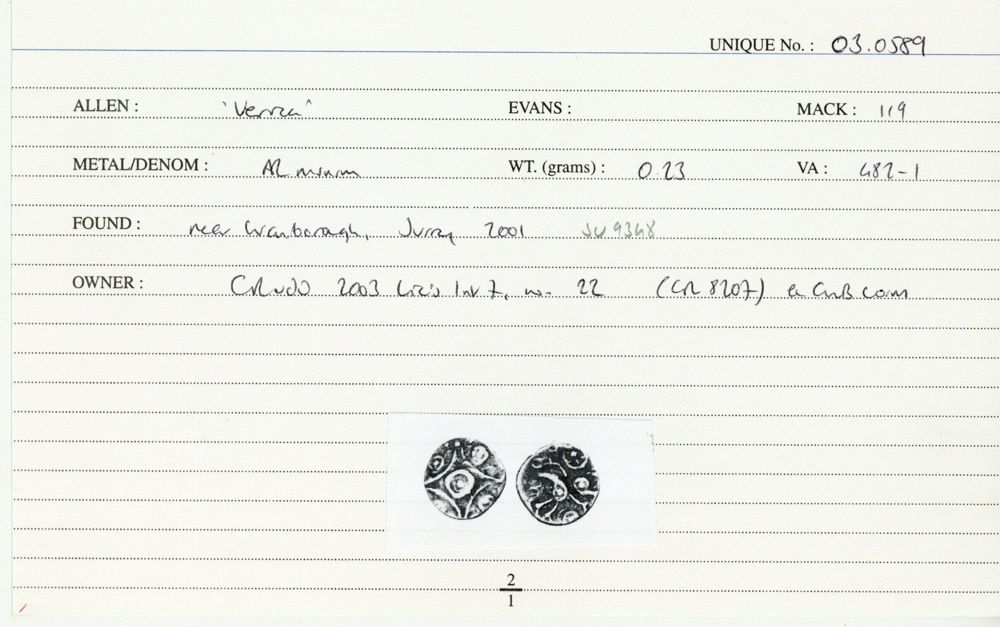 UNIQUE No. : 03.0589
ALLEN : 'Verica' EVANS : MACK : 119
METAL/DENOM : AR minim WT. (grams) : 0.23 VA : 482-1
FOUND : near Wanborough, Surrey 2001 SU 9348
OWNER : 2003 22 (CR 8207)
2
1